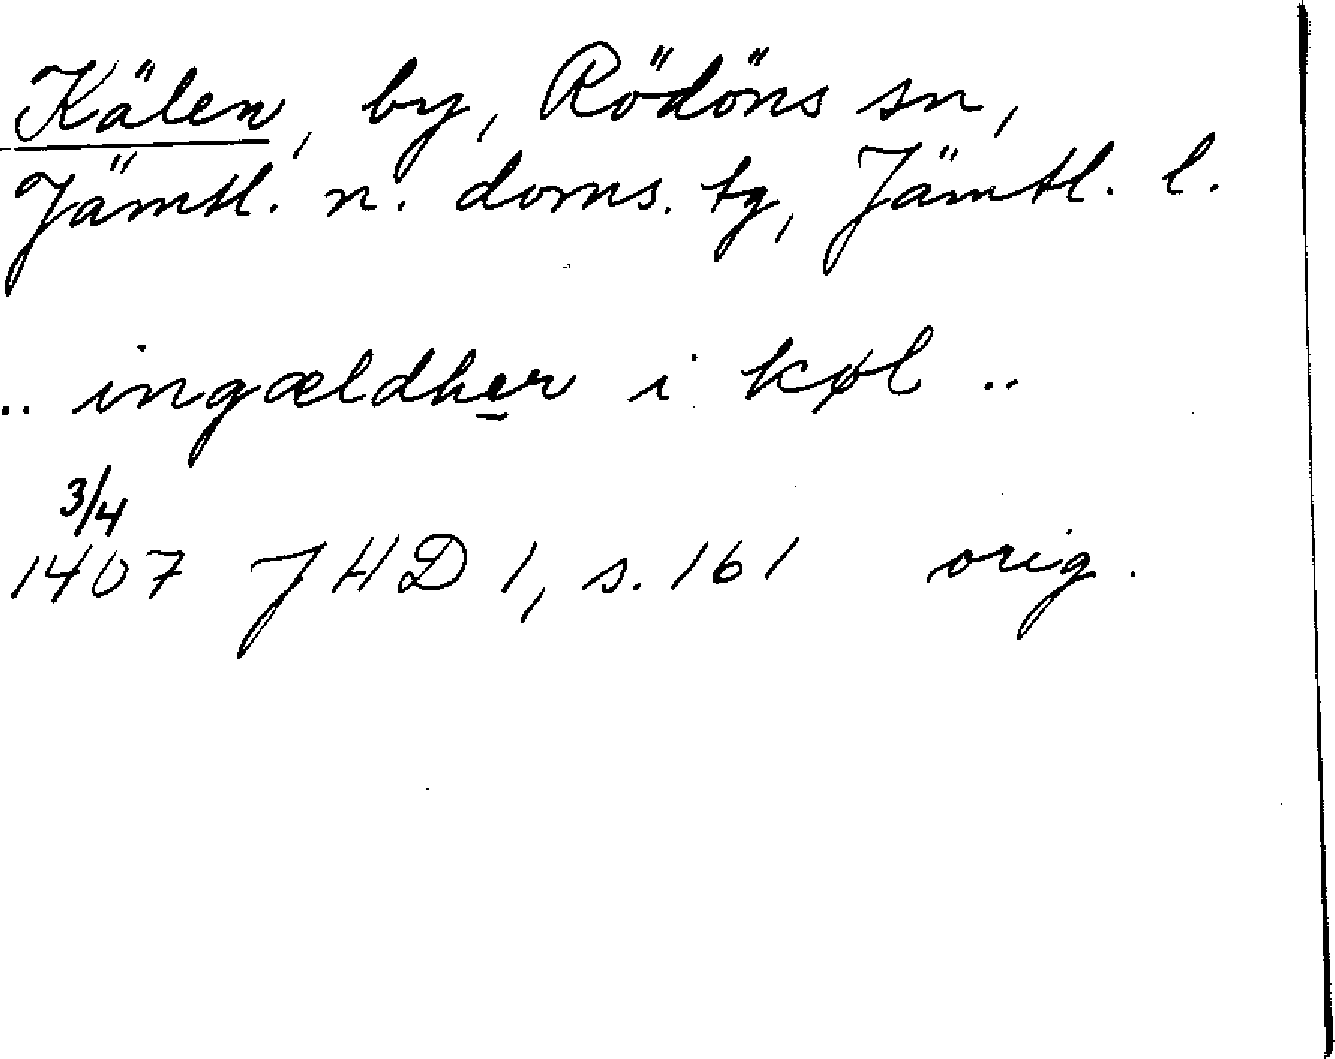 Kälen, by, Rödöns sn,
Jämtl. n. doms. tg, Jämtl. l.
.. ingældher i køl ..
3/4
1407 JHD 1, s. 161 orig.